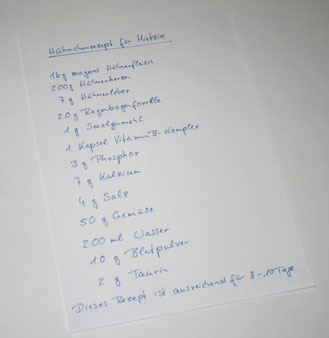 Hähnchenrezept für Miezie
1kg mageres Hühnerfleisch
200g Hühnerherzen
7 g Hühnerleber
20 g Regenbogenforelle
1 g Seealgenmehl
1 Kapsel Vitamin B-Komplex
3 g Phosphor
7 g Kalzium
4 g Salz
50 g Gemüse
200 ml Wasser
10 g Blutpulver
2 g Taurin
Dieses Rezept ist ausreichend für 8-10 Tage.